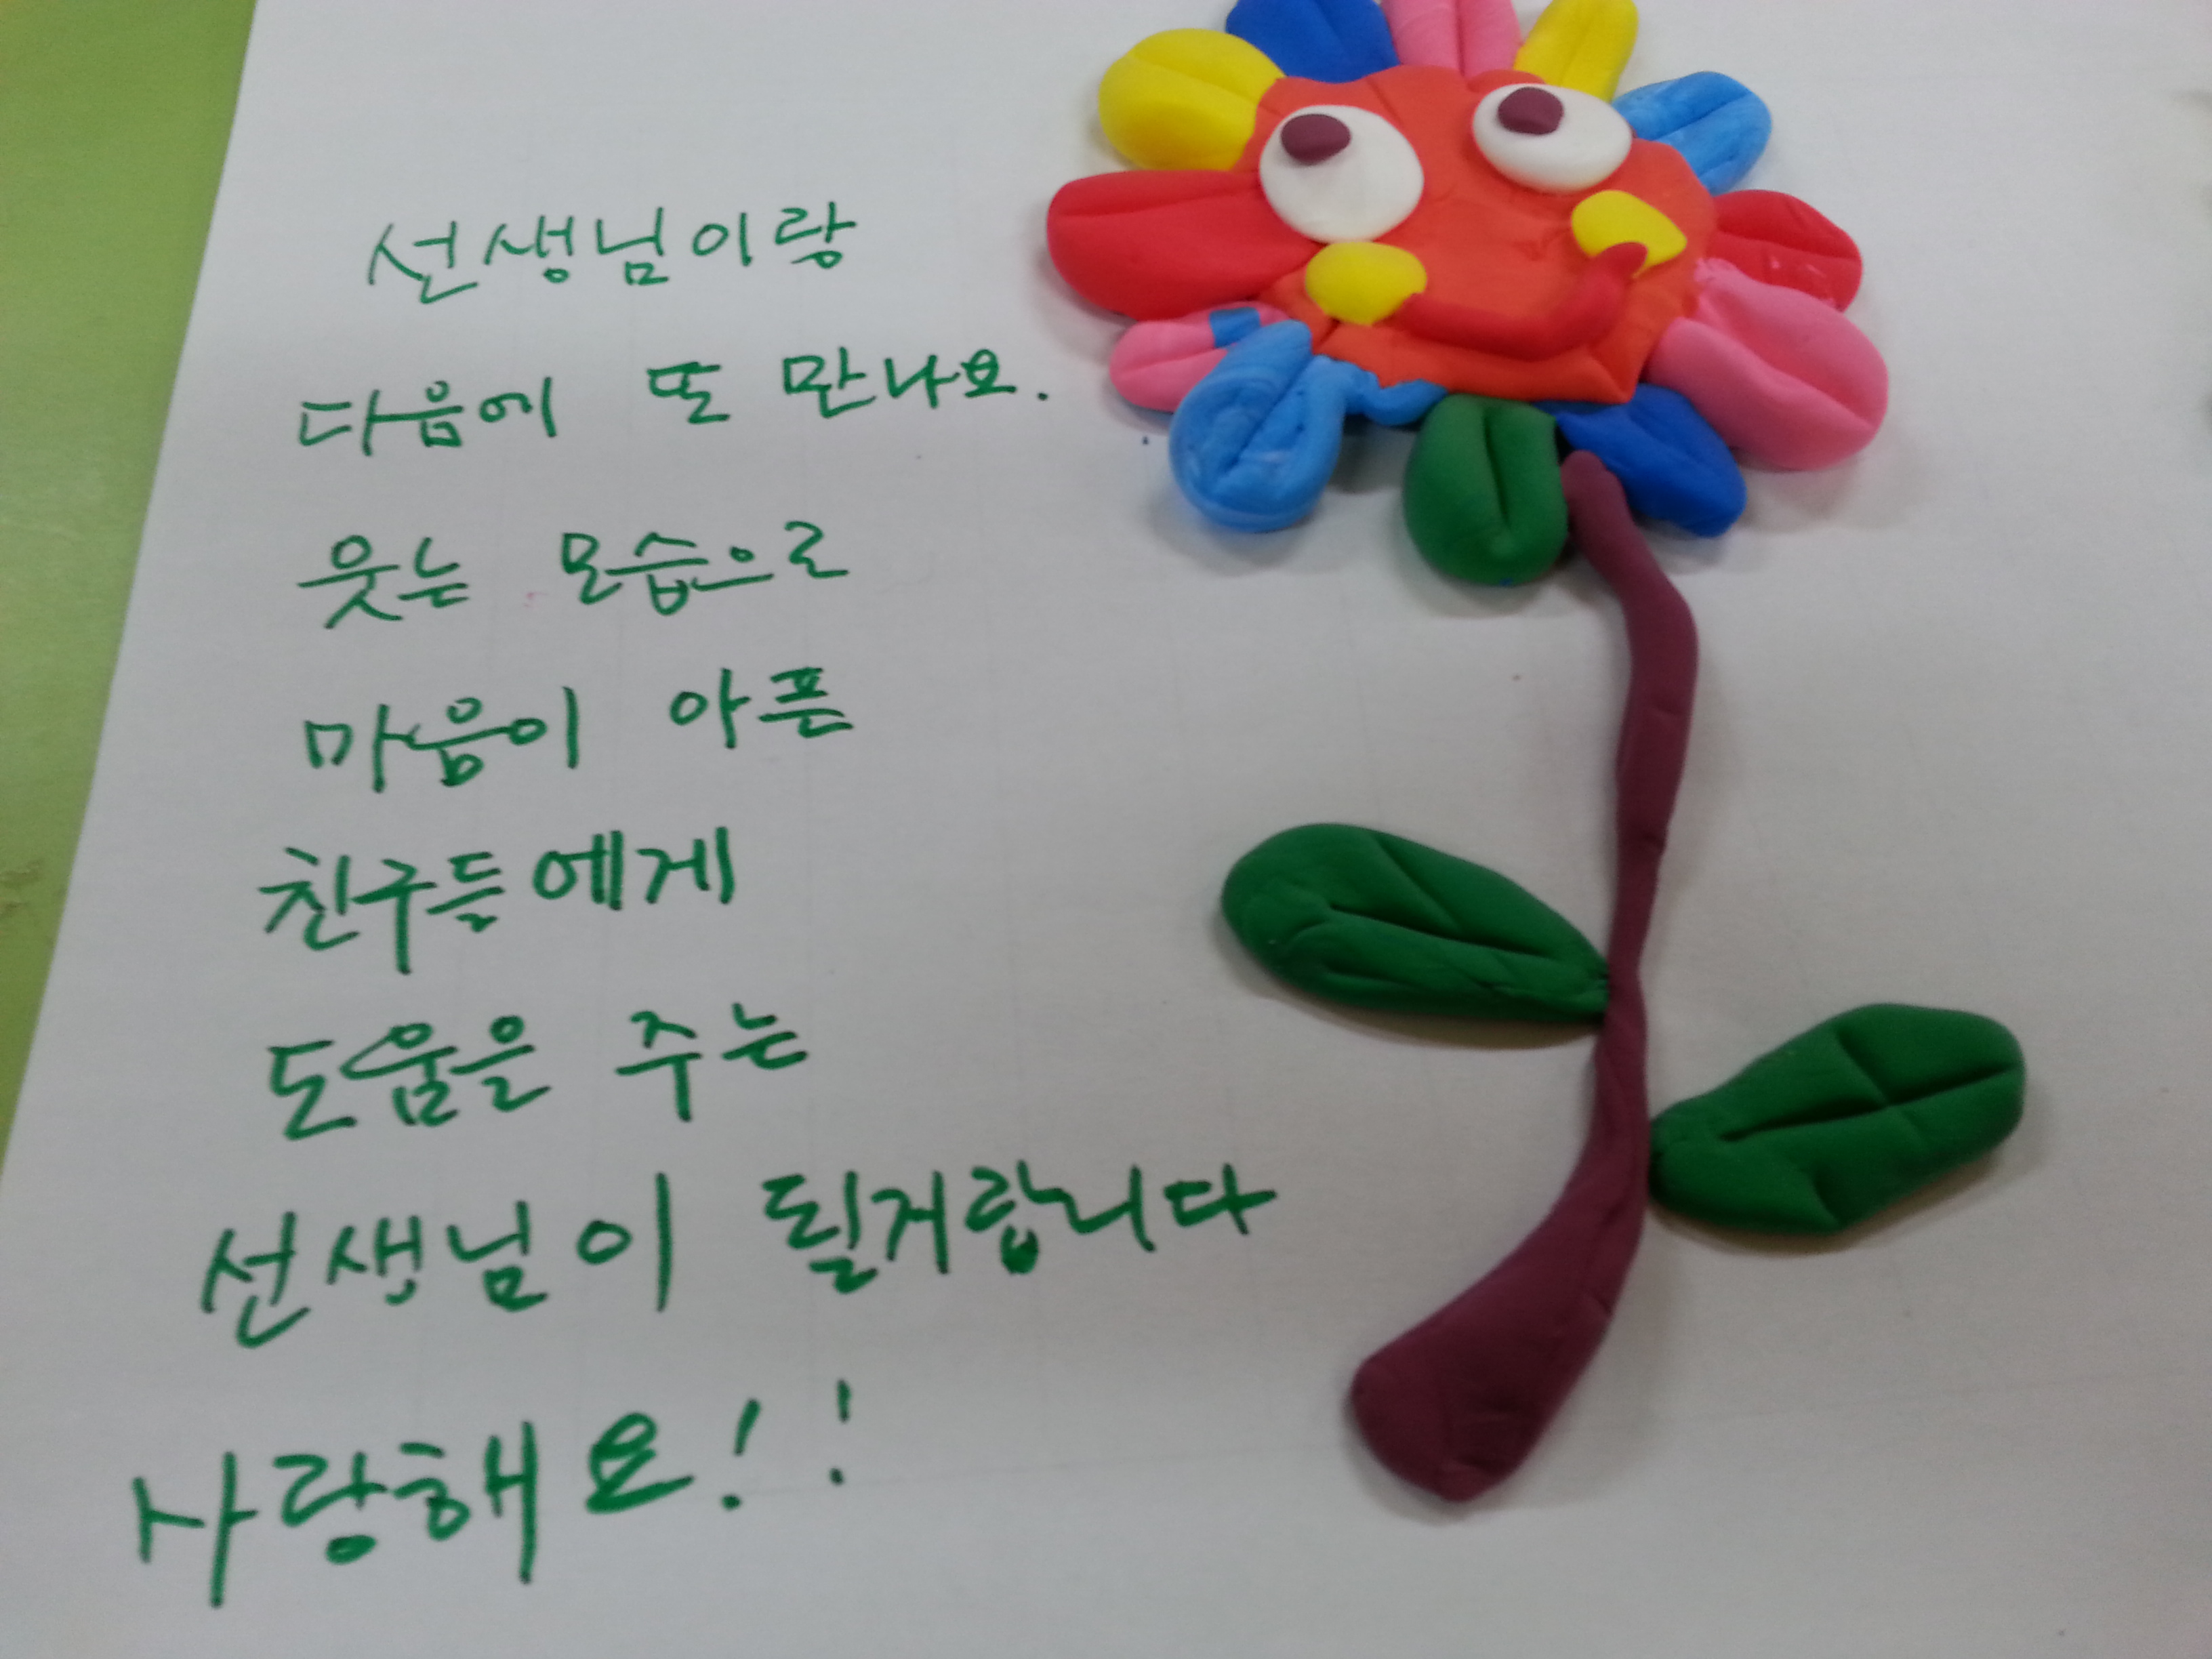 선생님이랑
다음에 또 만나요.
웃는 모습으로
마음이 아픈
친구들에게
도움을 주는
선생님이 될거랍니다
사랑해요!!